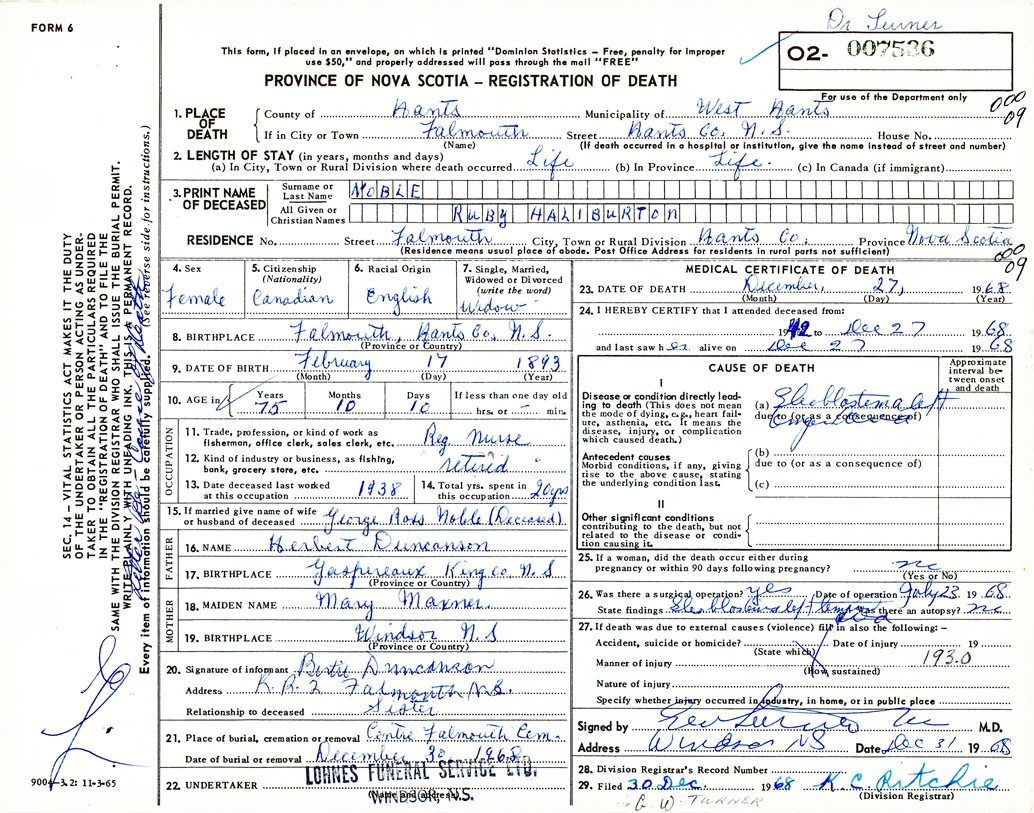 FORM 6
Dr Turner
This form, if placed in an envelope, on which is printed "Dominion Statistics – Free, penalty for improper
use $50," and properly addressed will pass through the mail "FREE"
O2- 007536
PROVINCE OF NOVA SCOTIA – REGISTRATION OF DEATH
For use of the Department only
000
09
1. PLACE OF DEATH
County of Hants Municipality of West Hants
If in City or Town Falmouth Street Hants Co. N.S. House No.
(Name) (If death occurred in a hospital or institution, give the name instead of street and number)
2. LENGTH OF STAY (in years, months and days)
(a) In City, Town or Rural Division where death occurred Life (b) In Province Life. (c) In Canada (if immigrant)
3. PRINT NAME OF DECEASED
Surname or Last Name NOBLE
All Given or Christian Names RUBY HALIBURTON
RESIDENCE No. Street Falmouth City, Town or Rural Division Hants Co. Province Nova Scotia
(Residence means usual place of abode. Post Office Address for residents in rural parts not sufficient)
000
09
4. Sex
Female
5. Citizenship
(Nationality)
Canadian
6. Racial Origin
English
7. Single, Married,
Widowed or Divorced
(write the word)
Widow
8. BIRTHPLACE Falmouth, Hants Co. N.S.
(Province or Country)
9. DATE OF BIRTH February 17 1893
(Month) (Day) (Year)
10. AGE in Years Months Days If less than one day old
75 10 10 hrs. or – min.
OCCUPATION
11. Trade, profession, or kind of work as
fisherman, office clerk, sales clerk, etc. Reg. Nurse
12. Kind of industry or business, as fishing,
bank, grocery store, etc. retired
13. Date deceased last worked
at this occupation 1938
14. Total yrs. spent in
this occupation 20 yrs
15. If married give name of wife
or husband of deceased George Ross Noble (Deceased)
FATHER
16. NAME Herbert Duncanson
17. BIRTHPLACE Gaspereaux King Co. N.S
(Province or Country)
MOTHER
18. MAIDEN NAME Mary Maxner
19. BIRTHPLACE Windsor N.S
(Province or Country)
20. Signature of informant Duncanson
Address R.R.2 Falmouth N.S.
Relationship to deceased Sister
21. Place of burial, cremation or removal Centre Falmouth Cem.
Date of burial or removal December 30 1968
22. UNDERTAKER LOHNES FUNERAL SERVICE LTD.
(Name and address)
WINDSOR, N.S.
MEDICAL CERTIFICATE OF DEATH
23. DATE OF DEATH December, 27, 1968
(Month) (Day) (Year)
24. I HEREBY CERTIFY that I attended deceased from:
1942 to Dec 27 1968
and last saw her alive on Dec 27 1968
CAUSE OF DEATH
Approximate
interval be-
tween onset
and death
I
Disease or condition directly lead-
ing to death (This does not mean
mode of dying, e.g., heart fail-
ure, asthenia, etc. It means the
disease, injury, or complication
which caused death.)
(a)
due to (or as a consequence of)
Antecedent causes
Morbid conditions, if any, giving
rise to the above cause, stating
the underlying condition last.
(b)
due to (or as a consequence of)
(c)
II
Other significant conditions
contributing to the death, but not
related to the disease or condi-
tion causing it.
25. If a woman, did the death occur either during
pregnancy or within 90 days following pregnancy? no
(Yes or No)
26. Was there a surgical operation? yes Date of operation July 23 1968
State findings Was there an autopsy? no
27. If death was due to external causes (violence) fill in also the following:–
Accident, suicide or homicide? Date of injury 19
(State which)
Manner of injury 193.0
(How sustained)
Nature of injury
Specify whether injury occurred in industry, in home, or in public place
Signed by M.D.
Address Windsor NS Date Dec 31 1968
28. Division Registrar's Record Number
29. Filed 30 Dec. 1968 K.C. Ritchie
(Division Registrar)
G. W. TURNER
SEC. 14 – VITAL STATISTICS ACT MAKES IT THE DUTY
OF THE UNDERTAKER OR PERSON ACTING AS UNDER-
TAKER TO OBTAIN ALL THE PARTICULARS REQUIRED
IN THE "REGISTRATION OF DEATH" AND TO FILE THE
SAME WITH THE DIVISION REGISTRAR WHO SHALL ISSUE THE BURIAL PERMIT.
WRITE PLAINLY WITH UNFADING INK. THIS IS A PERMANENT RECORD.
Every item of information should be carefully supplied. (See reverse side for instructions.)
9004–3.2: 11-3-65